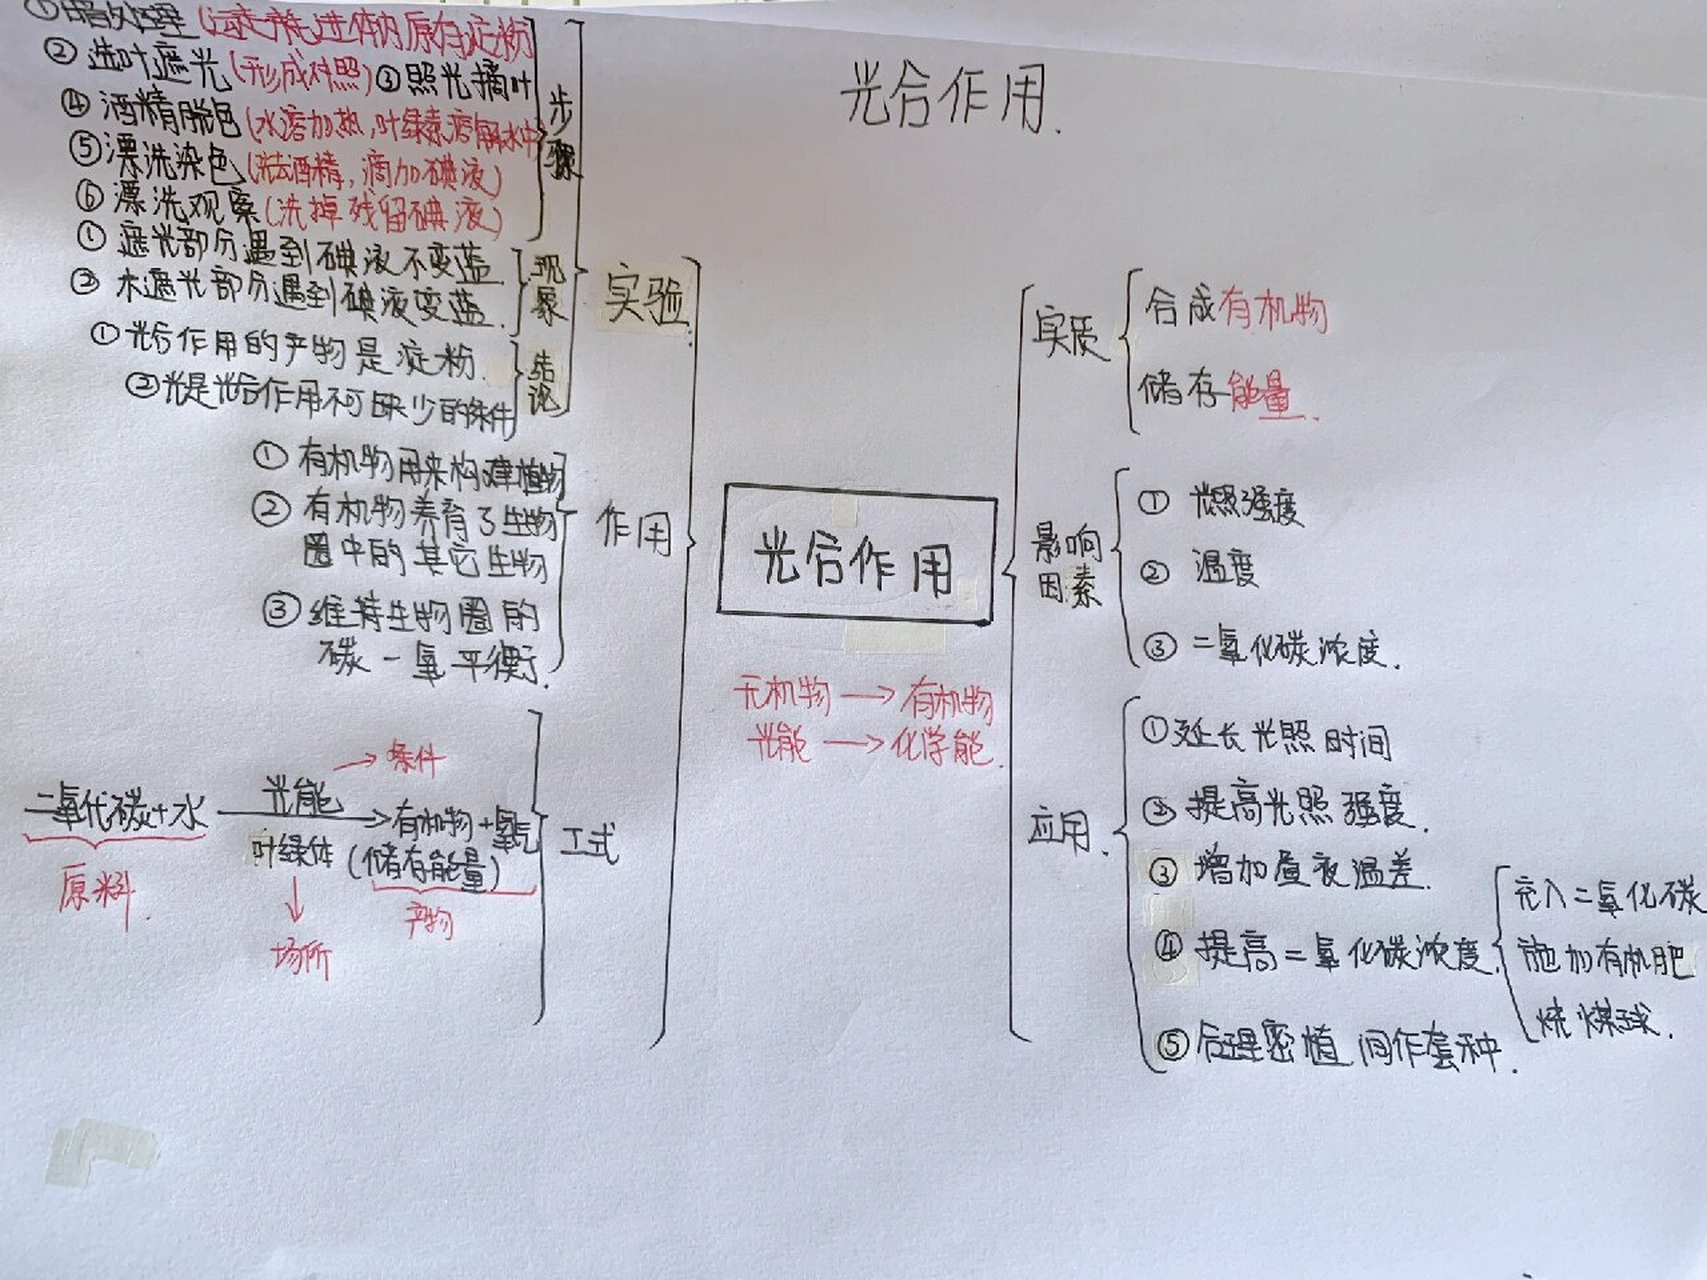 光合作用.
①暗处理(运走耗进体内原有淀粉)
②选叶遮光(形成对照)③照光摘叶
④酒精脱色(水溶加热,叶绿素溶解水中)
⑤漂洗染色(洗去酒精,滴加碘液)
⑥漂洗观察(洗掉残留碘液)
步骤
①遮光部分遇到碘液不变蓝.
②未遮光部分遇到碘液变蓝.
现象
①光合作用的产物是淀粉.
②光是光合作用不可缺少的条件
结论
实验.
①有机物用来构建植物
②有机物养育了生物
圈中的其它生物
③维持生物圈的
碳一氧平衡.
作用
→条件
二氧化碳+水
光能
叶绿体
有机物+氧气
(储存能量)
原料.
↓
场所
产物
工式
光合作用
无机物→有机物
光能→化学能.
实质
合成有机物
储存能量.
影响
因素
①光照强度
②温度
③二氧化碳浓度.
应用.
①延长光照时间
②提高光照强度.
③增加昼夜温差.
④提高二氧化碳浓度.
充入二氧化碳
施加有机肥
烧煤球.
⑤合理密植 间作套种.